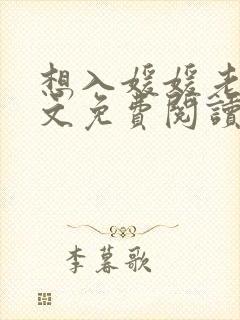 想入媛媛老
文免費閱讀
李暮歌